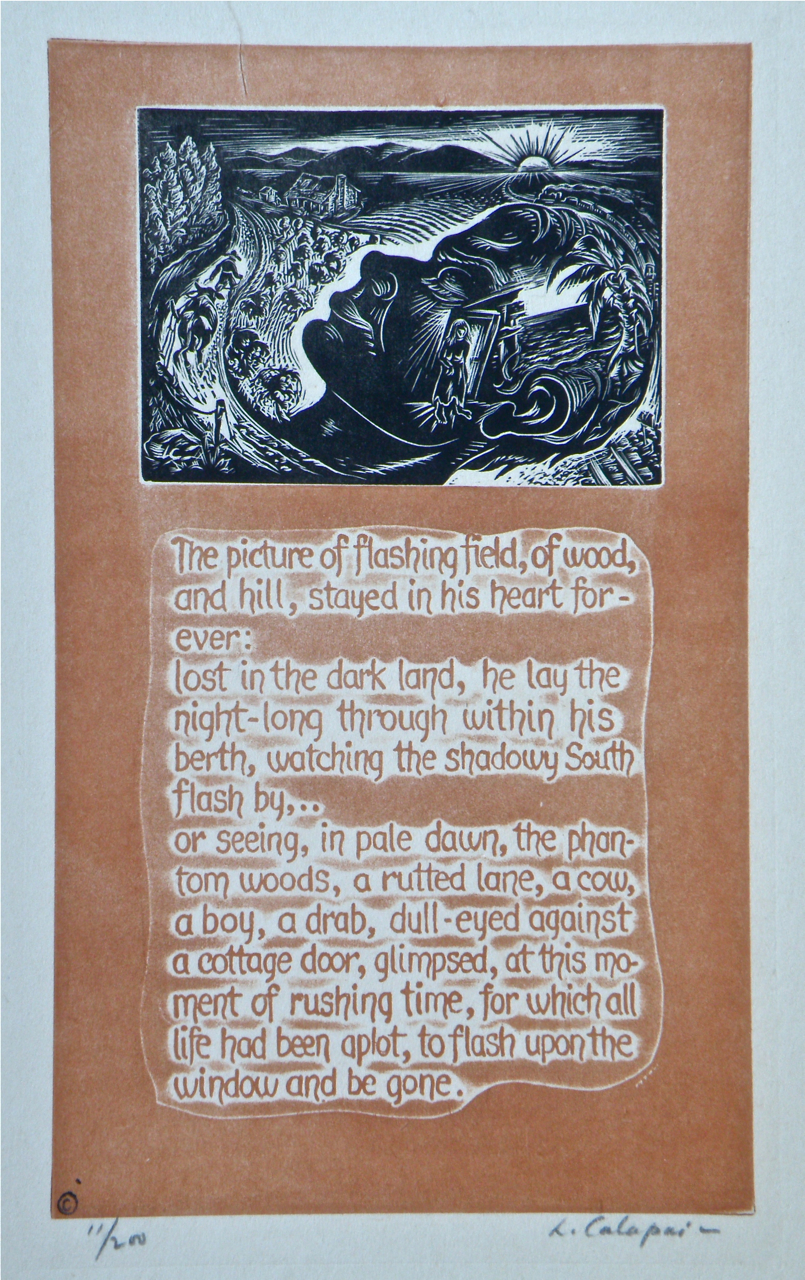 The picture of flashing field, of wood,
and hill, stayed in his heart for-
ever:
lost in the dark land, he lay the
night-long through within his
berth, watching the shadowy South
flash by,..
or seeing, in pale dawn, the phan-
tom woods, a rutted lane, a cow,
a boy, a drab, dull-eyed against
a cottage door, glimpsed, at this mo-
ment of rushing time, for which all
life had been aplot, to flash upon the
window and be gone.
©
11/200
L. Calapai